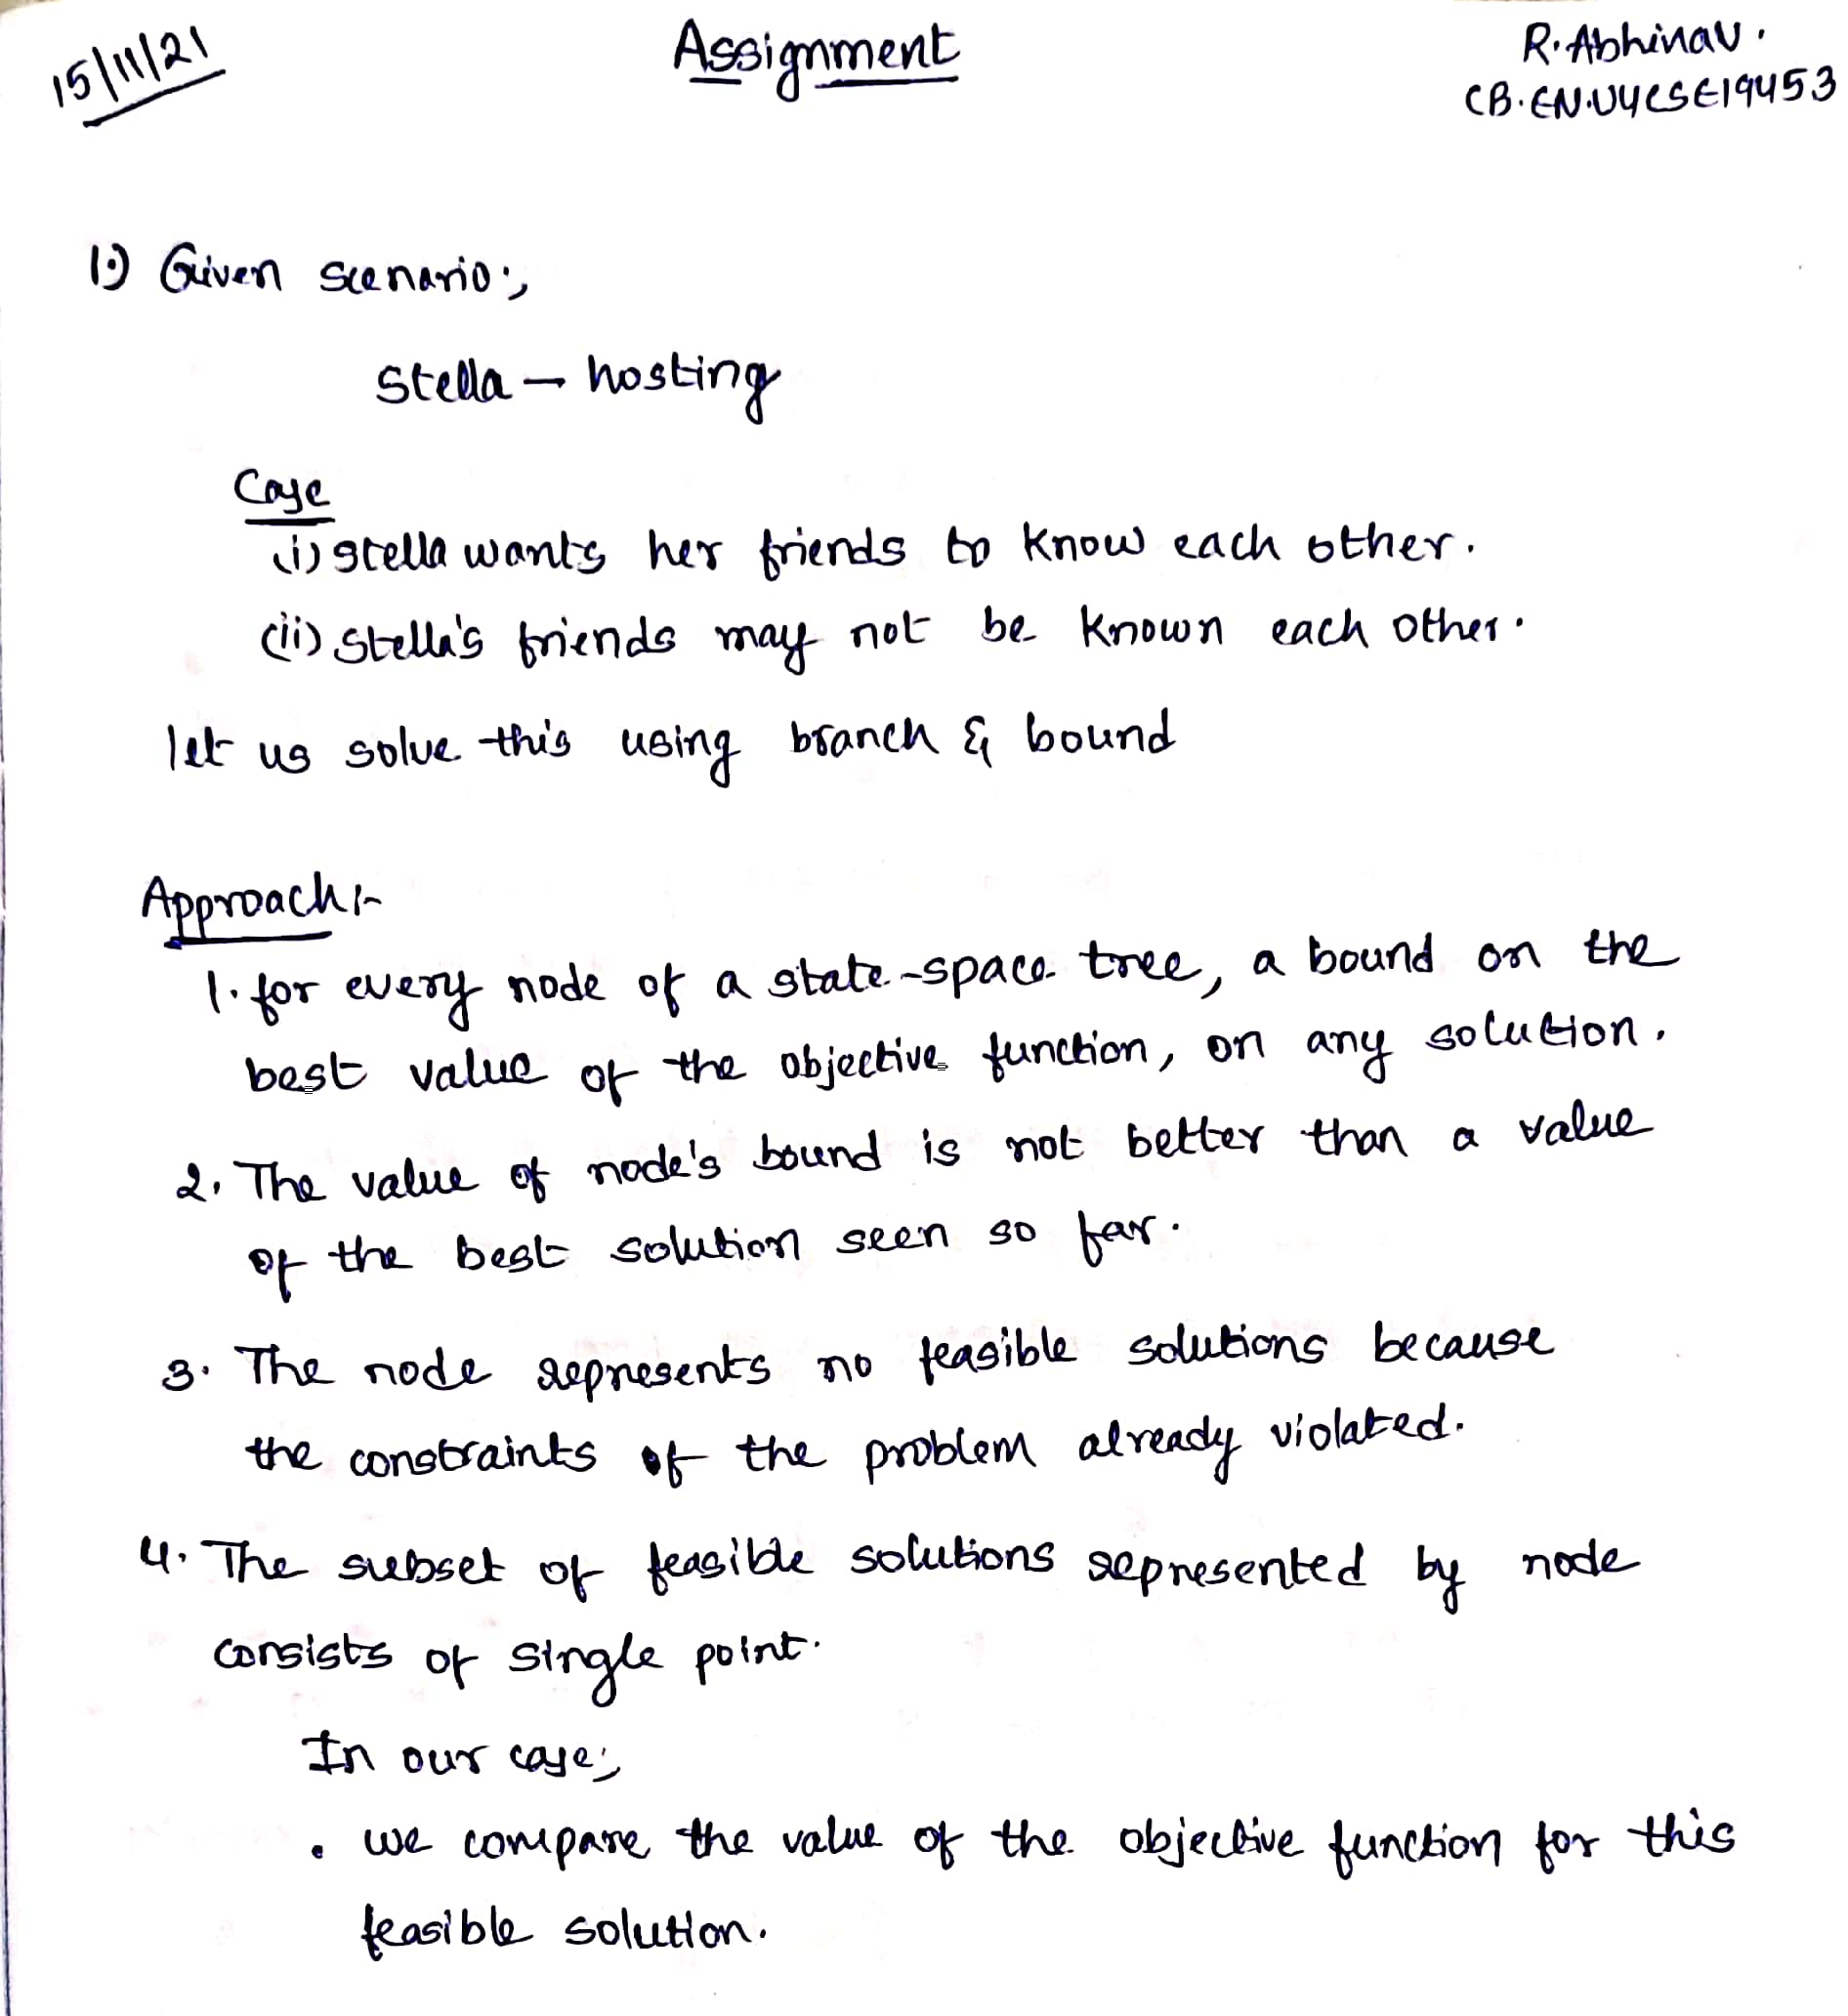 15/11/21
Assignment
R. Abhinav.
CB.EN.U4CSE19453
1.) Given scenario:,
Stella - hosting
Case
(i) Stella wants her friends to know each other.
(ii) Stella's friends may not be known each other.
let us solve this using branch & bound
Approach:-
1. for every node of a state-space tree, a bound on the
best value of the objective function, on any solution.
2. The value of node's bound is not better than a value
of the best solution seen so far.
3. The node represents no feasible solutions because
the constraints of the problem already violated.
4. The subset of feasible solutions represented by node
consists of single point.
In our case;
• we compare the value of the objective function for this
feasible solution.